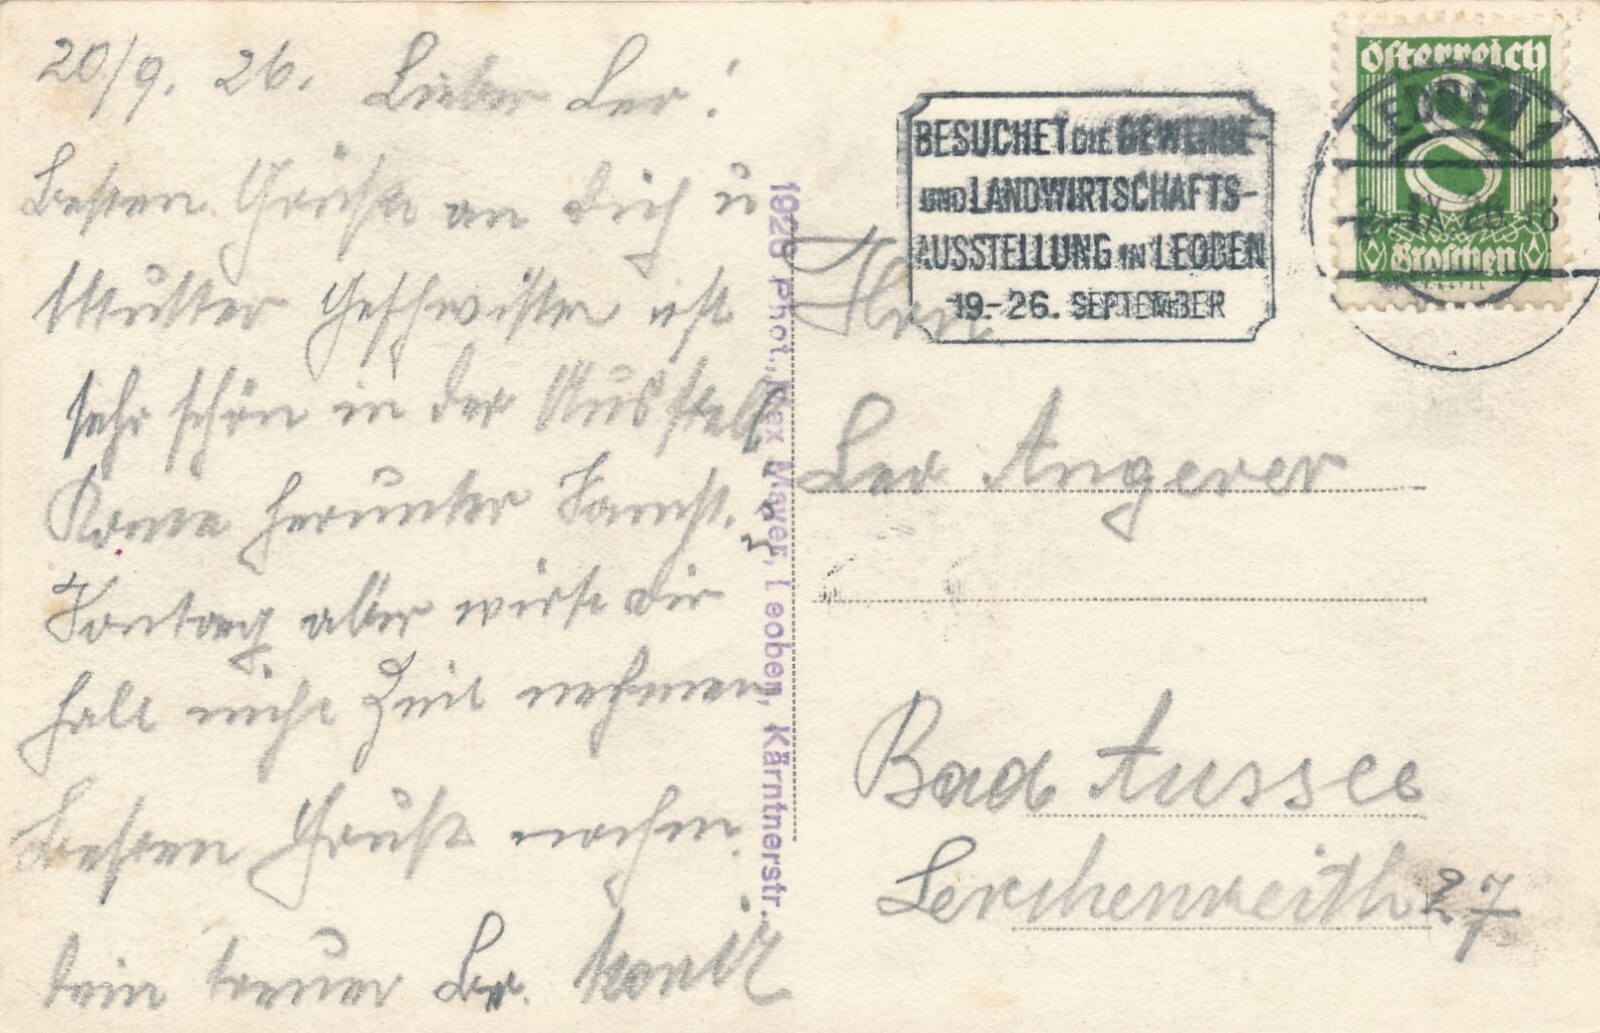 20/9. 26. Lieber Leo!
Besten Grüße an Dich u
Mutter Geschwister ist
sehr schön in der Ausstell
Kome herunter Samst.
Sontag aber wirst dir
halt nicht Zeit nehmen
Besten Gruß nochm.
dein treuer Br.
1926 Phot., Max Mayer, Leoben, Kärntnerstr.
BESUCHET DIE GEWERBE-
UND LANDWIRTSCHAFTS-
AUSSTELLUNG IN LEOBEN
19.-26. SEPTEMBER
Österreich
8
Groschen
LEOBEN 1
IX 26
Herrn
Leo Angerer
Bad Aussee
Lerchenreith 27